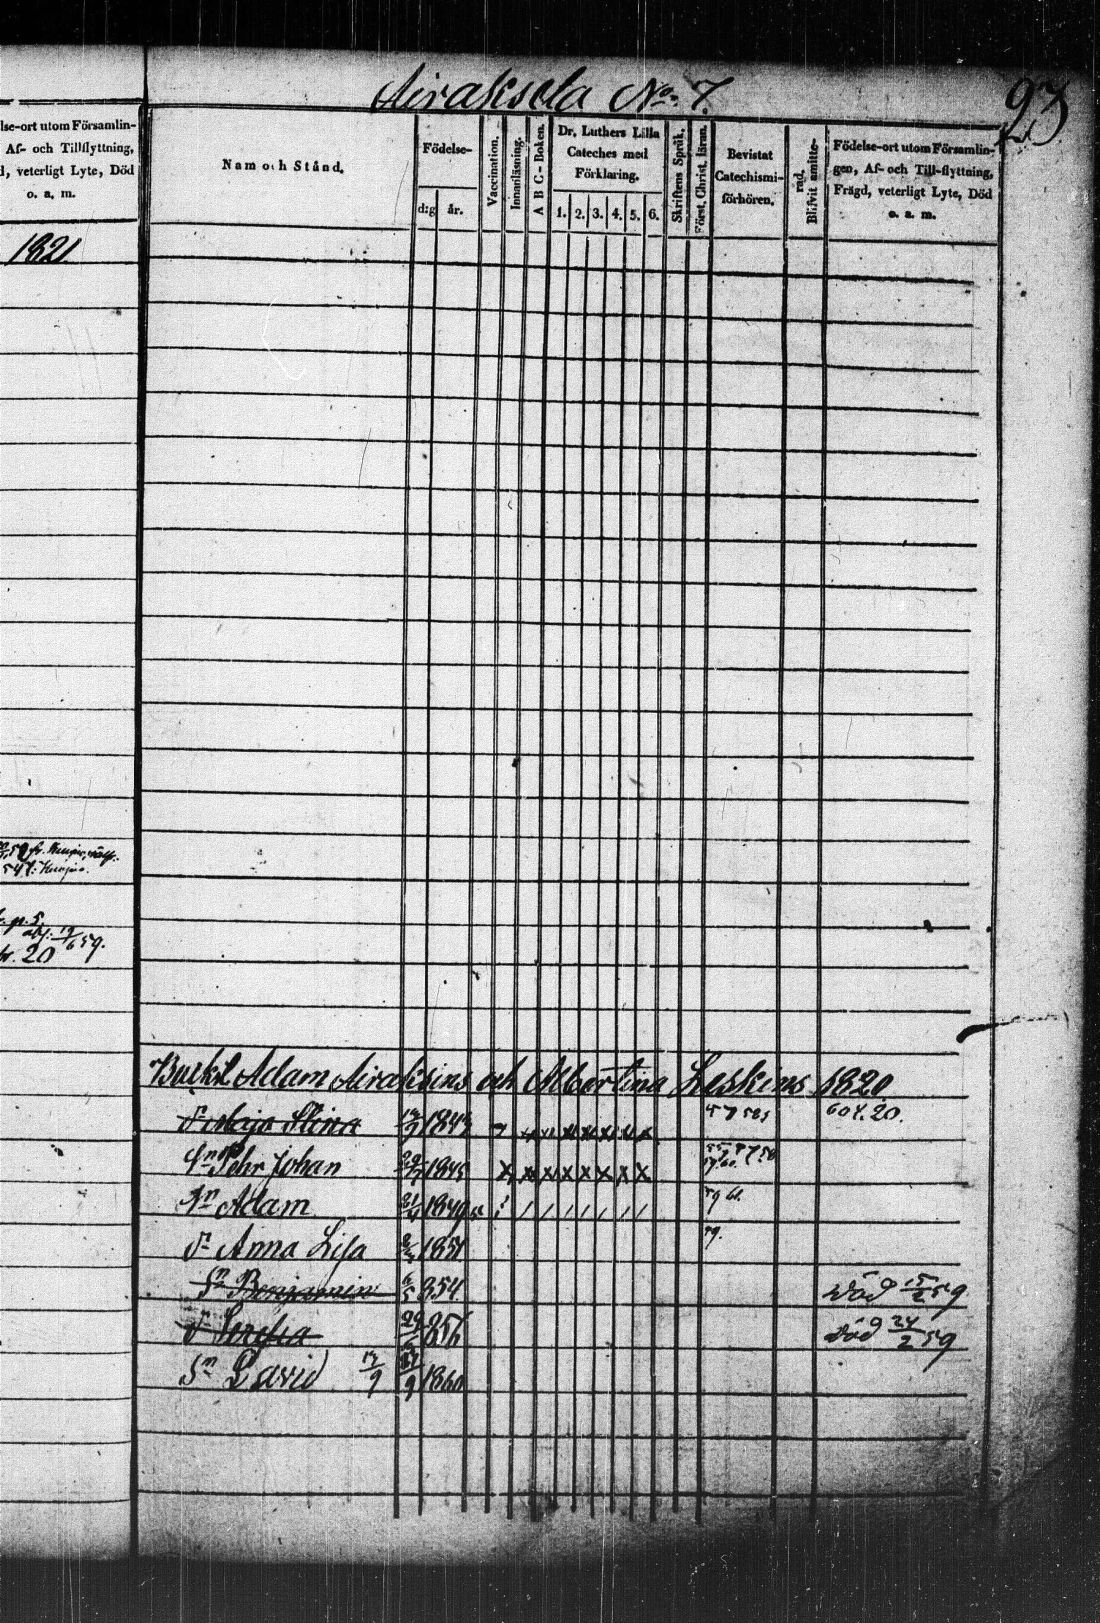 Airaksela No. 7.
23
lse-ort utom Församlin-
Af- och Tillflyttning,
d, veterligt Lyte, Död
o. a. m.
1821
54 t. Kuopio.
fr. p. 5
afl. 19/6 59.
fr. 20
Nam och Stånd.
Födelse-
d:g
år.
Vaccination.
Innanläsning.
A B C-Boken.
Dr. Luthers Lilla
Cateches med
Förklaring.
1. 2. 3. 4. 5. 6.
Skriftens Språk.
Först. Christ. läran.
Bevistat
Catechismi-
förhören.
Blifvit amitte-
rad.
Födelse-ort utom Församlin-
gen, Af- och Till-flyttning,
Frägd, veterligt Lyte, Död
o. a. m.
Adam Airaksins och Martina Leskins 1820
Maja Stina 1843 60 t. 20.
Sn Pehr Johan 1845
Sn Adam 1849 59 61.
Dr Anna Lisa 1851 59.
Sn Benjamin 6/5 854 Död 15/2 59
Dr 856 Död 24/2 59
Sn David 17/9 1860